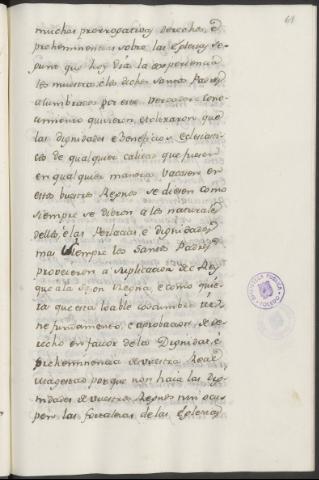 61
muchas prerrogativas, derechos, é
prehemminencias sobre las Eglesias, se-
gunt que hoy dia la experiencia
les muestra: é los dichos Santos Padres
alumbrados por este verdadero cono-
cimiento quisieron, e toleraron que
las dignidades e beneficios Eclesias-
ticos de qualquier calidad que fuesen
en qualquier manera vacasen en
estos vuestros Reynos se diesen como
siempre se dieron a los naturales
dellos, é las Perlacias, é dignidades
mas siempre los Santos Padres
proveieron a suplicacion del Rey
que a la sazon Reyna, e como quie-
ra que esta loable costumbre tie-
ne fundamento, e aprobacion de de-
recho en favor de la Dignidat, é
prehemminencia de vuestra Real
Magestad por que non haia las dig-
nidades de vuestros Reynos nin ocu-
pen las fortalezas de las Eglesias
BIBLIOTECA PUBLICA
TOLEDO